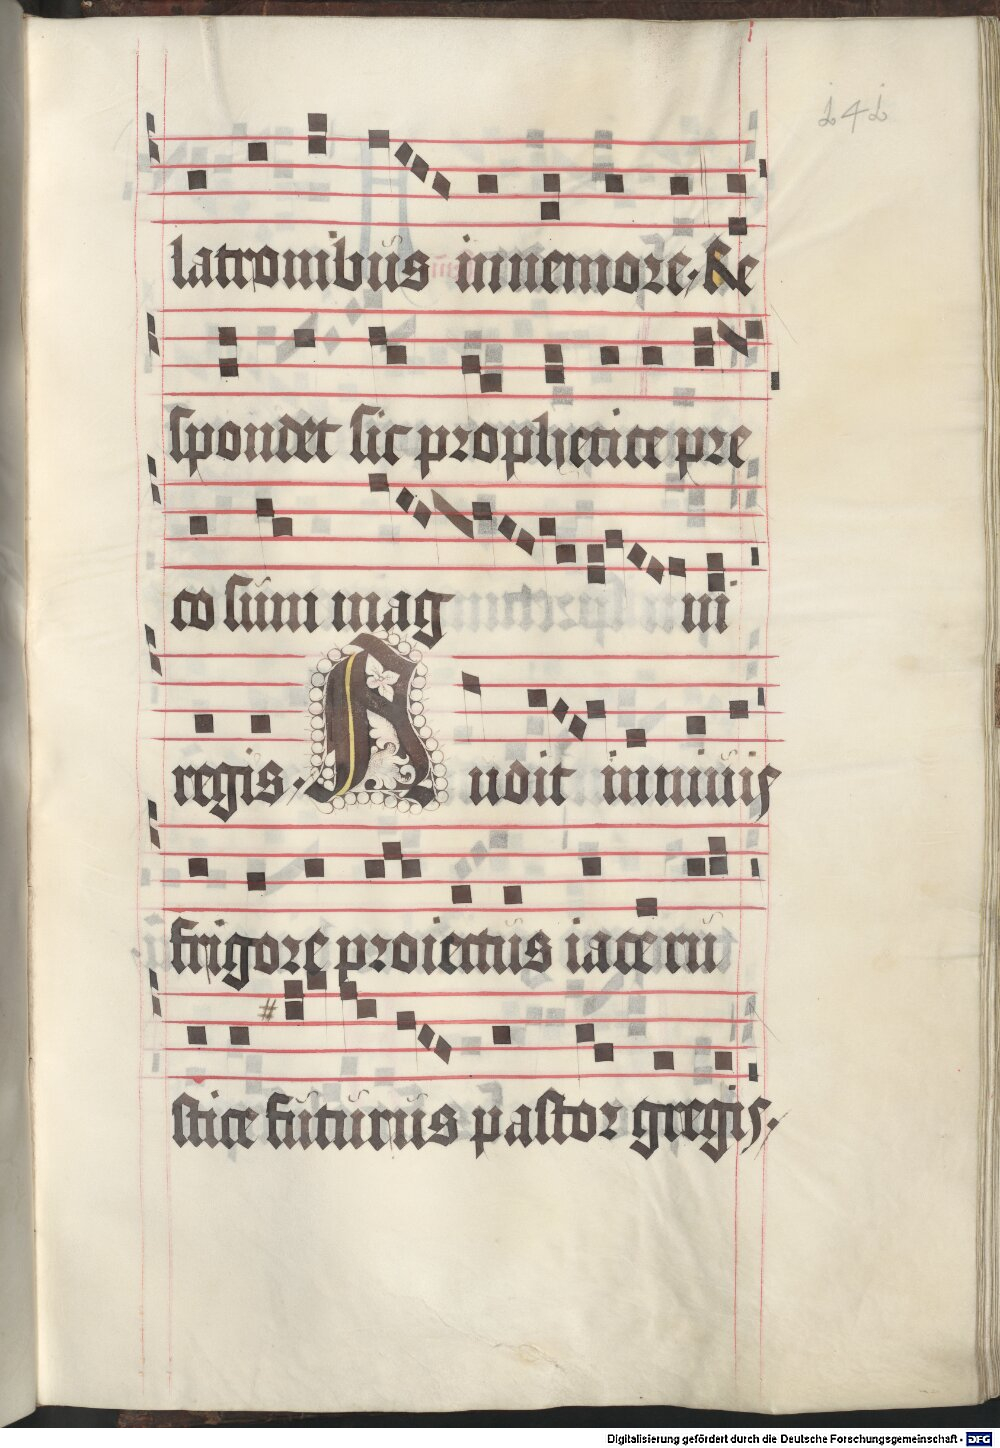 141
latronibus in nemore, Re
spondet sic prophetice pre
co sum mag ni
regis. Audit in niuis
frigore proiectus iace ru
stice futurus pastor gregis.
Digitalisierung gefördert durch die Deutsche Forschungsgemeinschaft - DFG